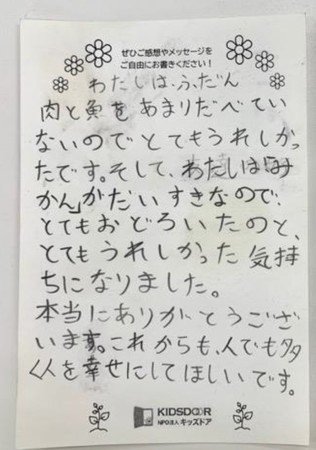 ぜひご感想やメッセージを
ご自由にお書きください!
わたしは、ふだん
肉と魚をあまりたべてい
ないのでとてもうれしかっ
たです。そして、わたしは「み
かん」がだいすきなので、
とてもおどろいたのと、
とてもうれしかった気持
ちになりました。
本当にありがとうござい
います。これからも、人でも多
く人を幸せにしてほしいです。
KIDSDOOR
NPO法人 キッズドア